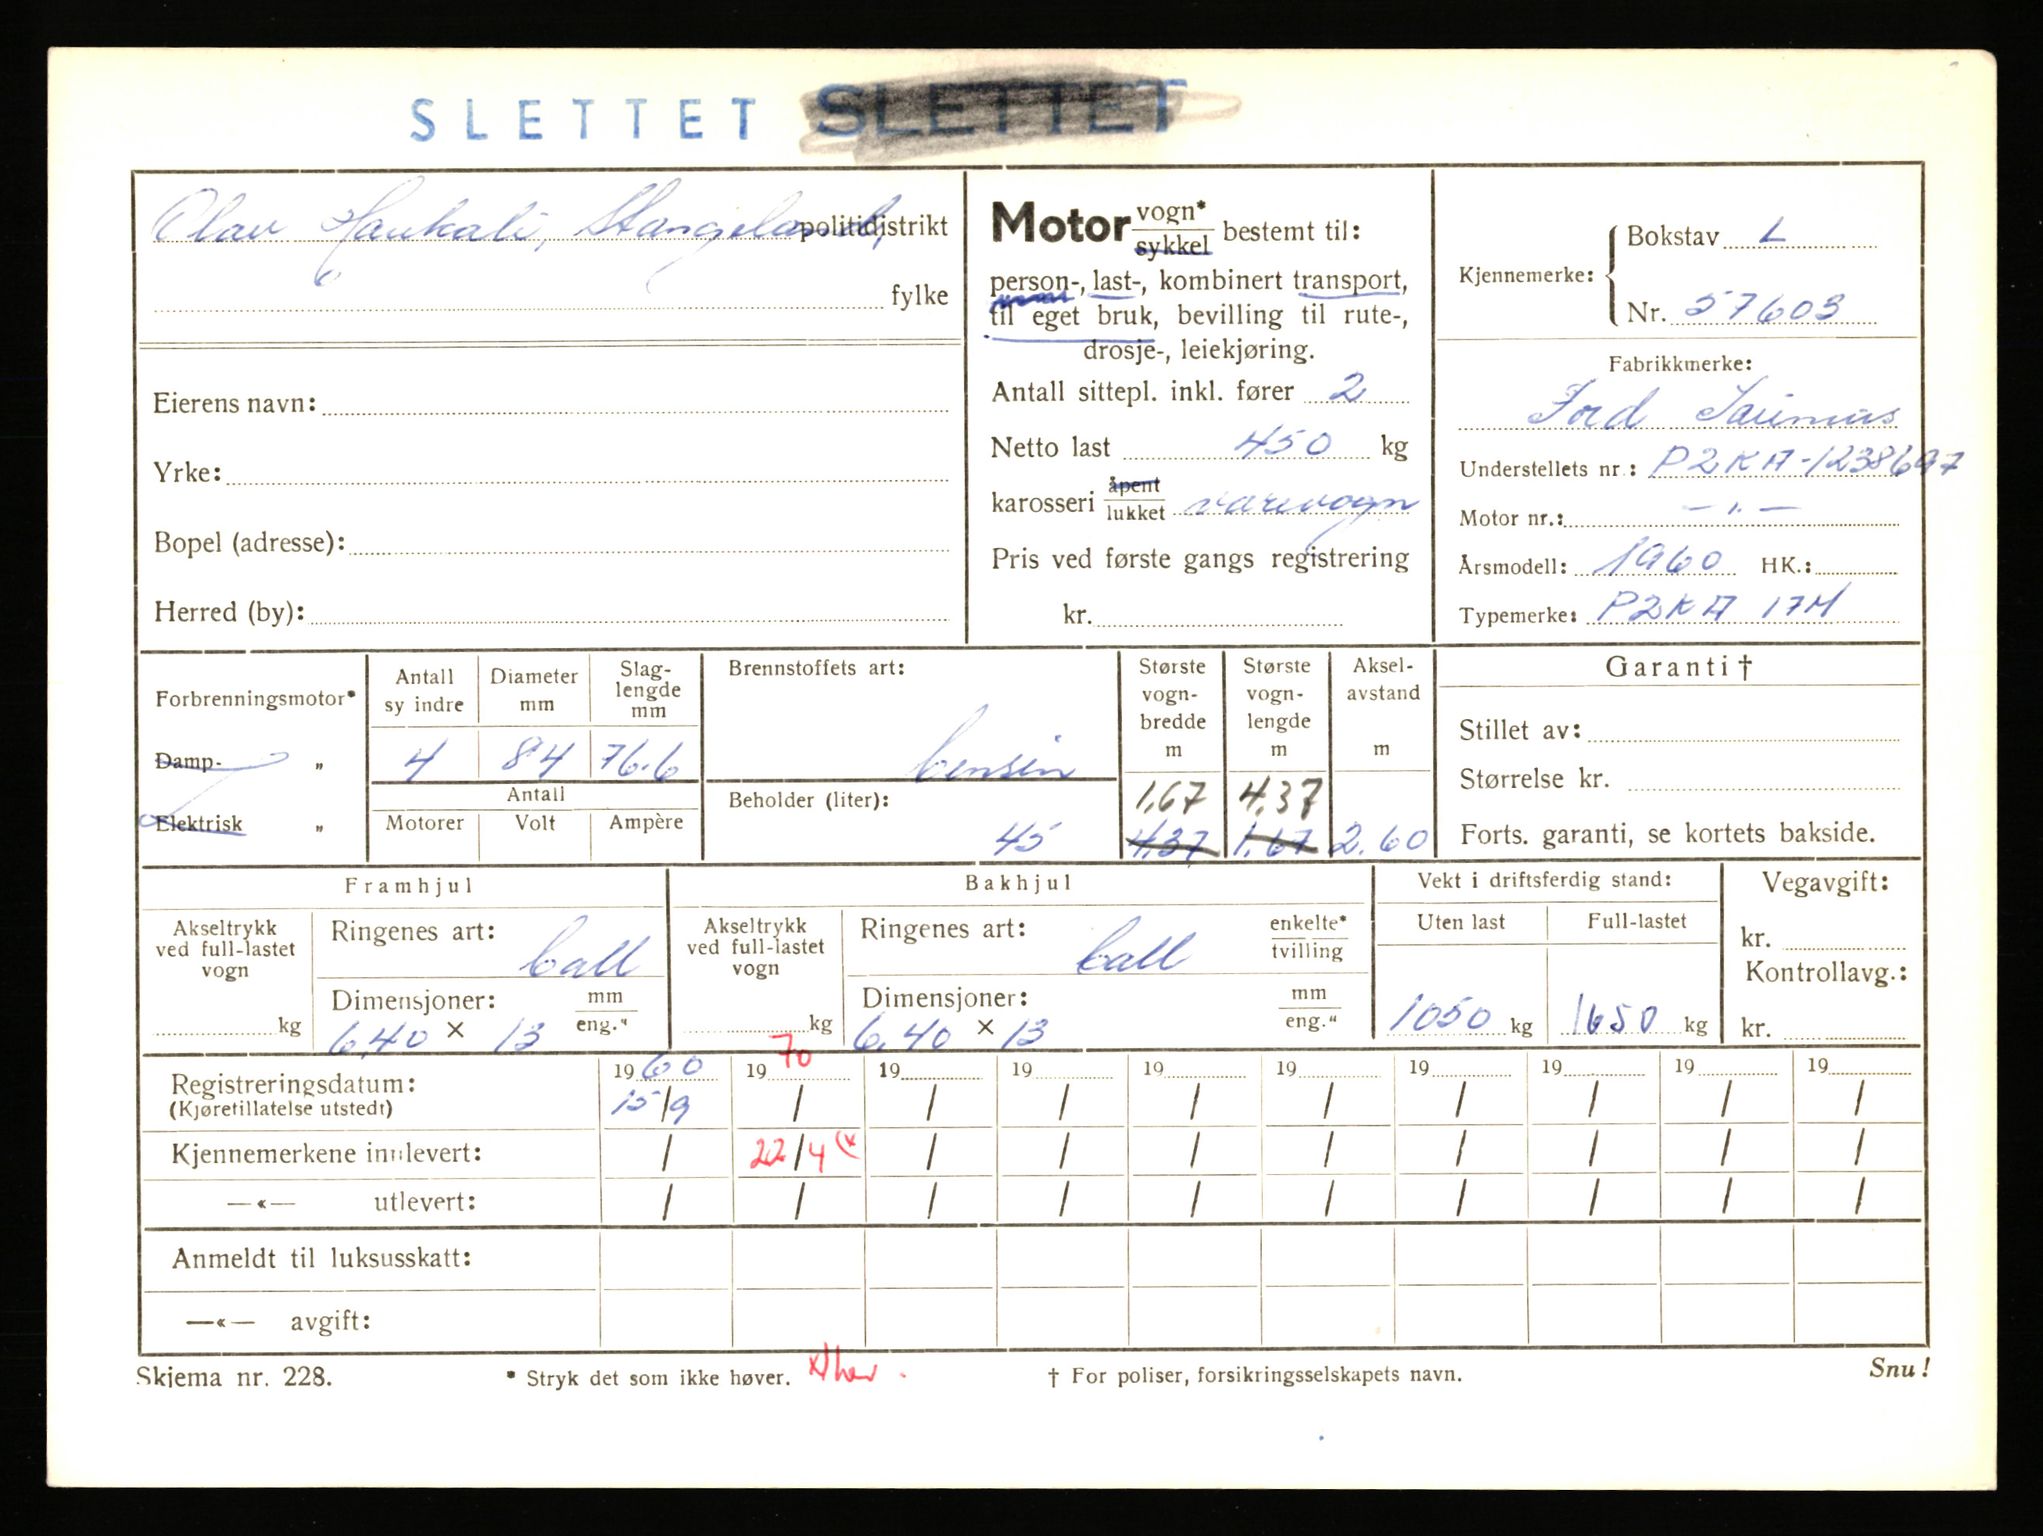 SLETTET SLETTET
Olav Haukali, Stangeland, politidistrikt
fylke
Eierens navn:
Yrke:
Bopel (adresse):
Herred (by):
Motor vogn* sykkel bestemt til:
person-, last-, kombinert transport,
til eget bruk, bevilling til rute-,
drosje-, leiekjøring.
Antall sittepl. inkl. fører 2
Netto last 450 kg
karosseri åpent lukket varevogn
Pris ved første gangs registrering
kr.
Kjennemerke: Bokstav L
Nr. 57603
Fabrikkmerke:
Ford Taunus
Understellets nr.: P2KA-1238697
Motor nr.: — " —
Årsmodell: 1960 HK.:
Typemerke: P2KA 17M
Forbrenningsmotor*
Damp- "
Elektrisk "
Antall sy indre
Diameter mm
Slag-lengde mm
4 84 76.6
Antall
Motorer Volt Ampère
Brennstoffets art:
bensin
Beholder (liter):
45
Største vogn-bredde m
Største vogn-lengde m
Aksel-avstand m
1,67 4,37
4,37 1,67 2.60
Garanti †
Stillet av:
Størrelse kr.
Forts. garanti, se kortets bakside.
Framhjul
Akseltrykk ved full-lastet vogn
kg
Ringenes art: ball
Dimensjoner: mm eng."
6,40 × 13
Bakhjul
Akseltrykk ved full-lastet vogn
kg
Ringenes art: ball enkelte* tvilling
Dimensjoner: mm eng."
6,40 × 13
Vekt i driftsferdig stand:
Uten last Full-lastet
1050 kg 1650 kg
Vegavgift:
kr.
Kontrollavg.:
kr.
Registreringsdatum: 1960 1970 19 19 19 19 19 19 19 19
(Kjøretillatelse utstedt) 15/9 / / / / / / / / /
Kjennemerkene innlevert: / 22/4 (x / / / / / / / /
—«— utlevert: / / / / / / / / / /
Anmeldt til luksusskatt:
—«— avgift:
Skjema nr. 228. * Stryk det som ikke høver. † For poliser, forsikringsselskapets navn. Snu!